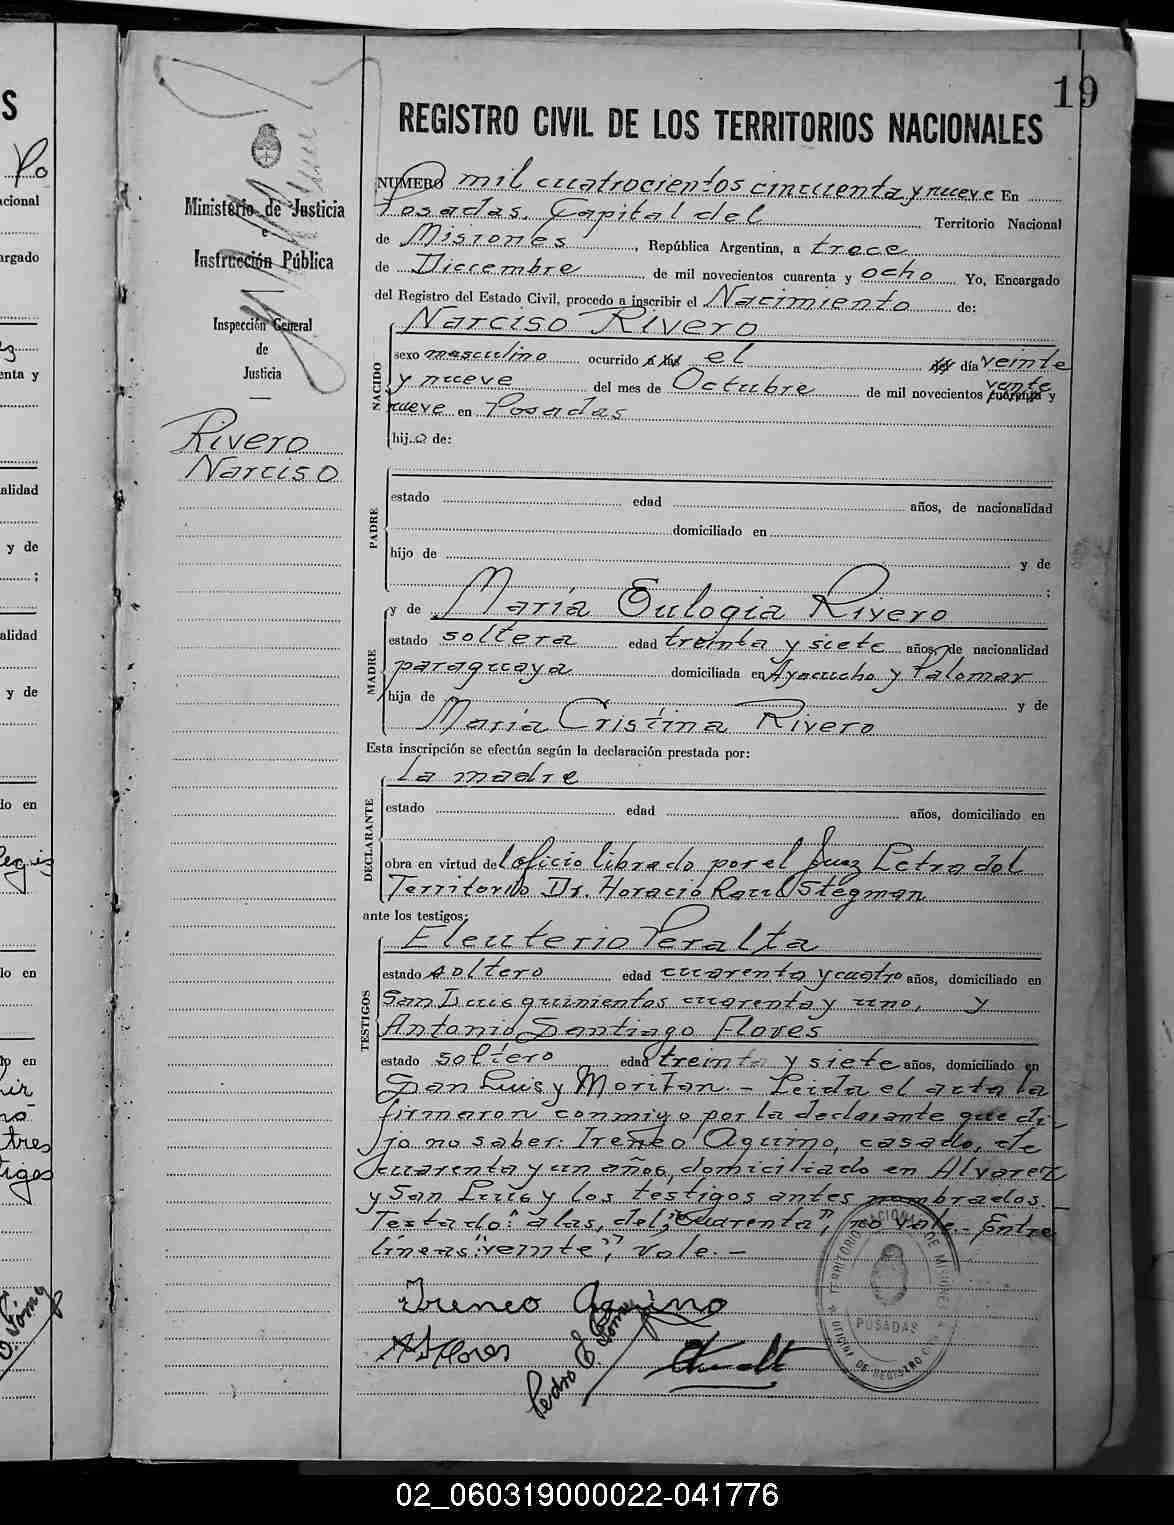 19
REGISTRO CIVIL DE LOS TERRITORIOS NACIONALES
Ministerio de Justicia
e
Instrucción Pública
Inspección General
de
Justicia
Rivero
Narciso
NUMERO mil cuatrocientos cincuenta y nueve En
Posadas, Capital del Territorio Nacional
de Misiones, República Argentina, a trece
de Diciembre de mil novecientos cuarenta y ocho Yo, Encargado
del Registro del Estado Civil, procedo a inscribir el Nacimiento de:
NACIDO
Narciso Rivero
sexo masculino ocurrido a las el del día veinte
y nueve del mes de Octubre de mil novecientos cuarenta y
veinte
nueve en Posadas
hijo de:
PADRE
estado edad años, de nacionalidad
domiciliado en
hijo de y de
;
MADRE
y de María Eulogia Rivero
estado soltera edad treinta y siete años, de nacionalidad
paraguaya domiciliada en Ayacucho y Palomar
hija de y de
María Cristina Rivero
Esta inscripción se efectúa según la declaración prestada por:
DECLARANTE
la madre
estado edad años, domiciliado en
obra en virtud del oficio librado por el Juez Letrado del
Territorio Dr. Horacio Raul Stegman
ante los testigos:
TESTIGOS
Eleuterio Peralta
estado soltero edad cuarenta y cuatro años, domiciliado en
San Luis quinientos cuarenta y uno, y
Antonio Santiago Flores
estado soltero edad treinta y siete años, domiciliado en
San Luis y Moritan.- Leida el acta la
firmaron conmigo por la declarante que di-
jo no saber: Ireneo Aquino, casado, de
cuarenta y un años, domiciliado en Alvarez
y San Luis y los testigos antes nombrados.-
Testado: "a las, del, "Cuarenta", no vale.- Entre
lineas: "veinte", Vale.-
Ireneo Aquino
A S Flores
Pedro E. Gómez
TERRITORIO NACIONAL DE MISIONES
POSADAS
02_060319000022-041776